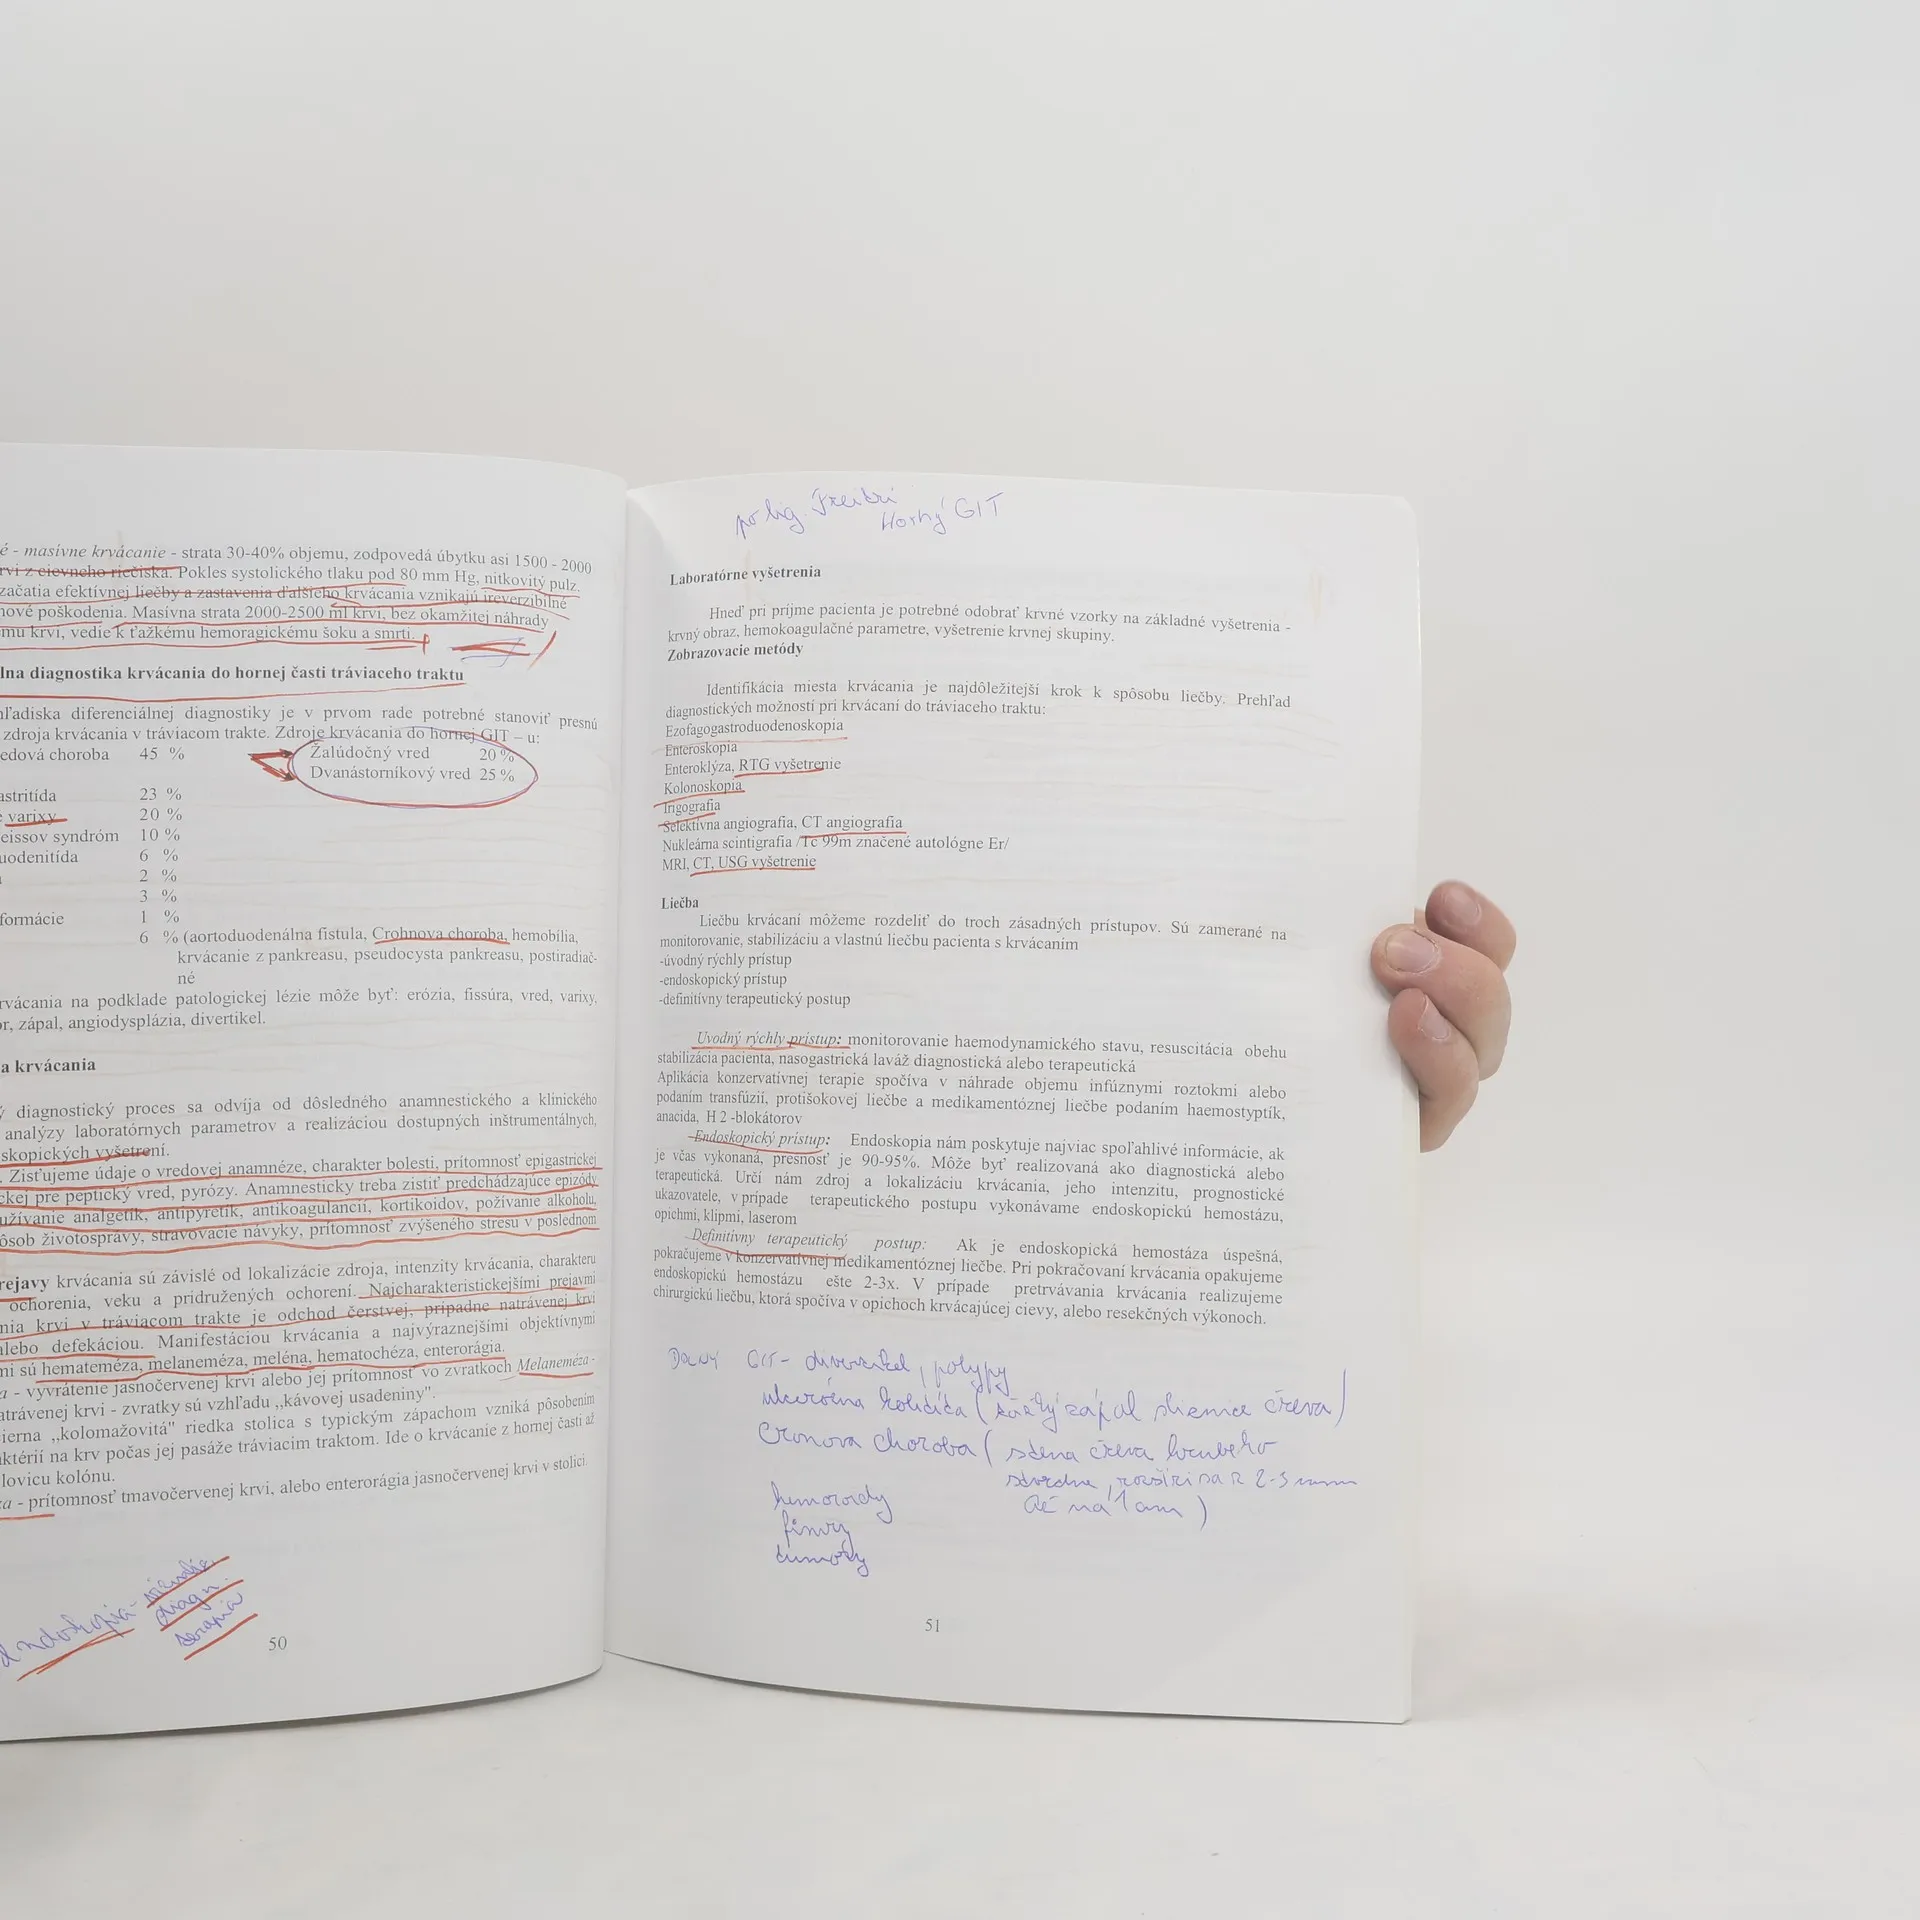 é - masívne krvácanie - strata 30-40% objemu, zodpovedá úbytku asi 1500 - 2000
rvi z cievneho riečiska. Pokles systolického tlaku pod 80 mm Hg, nitkovitý pulz.
začatia efektívnej liečby a zastavenia ďalšieho krvácania vznikajú ireverzibilné
nové poškodenia. Masívna strata 2000-2500 ml krvi, bez okamžitej náhrady
mu krvi, vedie k ťažkému hemoragickému šoku a smrti.
lna diagnostika krvácania do hornej časti tráviaceho traktu
hľadiska diferenciálnej diagnostiky je v prvom rade potrebné stanoviť presnú
zdroja krvácania v tráviacom trakte. Zdroje krvácania do hornej GIT – u:
edová choroba 45 % Žalúdočný vred 20 %
Dvanástorníkový vred 25 %
astritída 23 %
varixy 20 %
eissov syndróm 10 %
uodenitída 6 %
2 %
3 %
formácie 1 %
6 % (aortoduodenálna fistula, Crohnova choroba, hemobília,
krvácanie z pankreasu, pseudocysta pankreasu, postiradiač-
né
rvácania na podklade patologickej lézie môže byť: erózia, fissúra, vred, varixy,
or, zápal, angiodysplázia, divertikel.
a krvácania
ý diagnostický proces sa odvíja od dôsledného anamnestického a klinického
analýzy laboratórnych parametrov a realizáciou dostupných inštrumentálnych,
skopických vyšetrení.
. Zisťujeme údaje o vredovej anamnéze, charakter bolesti, prítomnosť epigastrickej
ckej pre peptický vred, pyrózy. Anamnesticky treba zistiť predchádzajúce epizódy
užívanie analgetík, antipyretík, antikoagulancií, kortikoidov, požívanie alkoholu,
ôsob životosprávy, stravovacie návyky, prítomnosť zvýšeného stresu v poslednom
rejavy krvácania sú závislé od lokalizácie zdroja, intenzity krvácania, charakteru
ochorenia, veku a pridružených ochorení. Najcharakteristickejšími prejavmi
nia krvi v tráviacom trakte je odchod čerstvej, prípadne natrávenej krvi
alebo defekáciou. Manifestáciou krvácania a najvýraznejšími objektívnymi
mi sú hemateméza, melaneméza, meléna, hematochéza, enterorágia.
a - vyvrátenie jasnočervenej krvi alebo jej prítomnosť vo zvratkoch Melaneméza-
atrávenej krvi - zvratky sú vzhľadu ,,kávovej usadeniny".
ierna ,,kolomažovitá" riedka stolica s typickým zápachom vzniká pôsobením
aktérií na krv počas jej pasáže tráviacim traktom. Ide o krvácanie z hornej časti až
lovicu kolónu.
za - prítomnosť tmavočervenej krvi, alebo enterorágia jasnočervenej krvi v stolici.
diagn.
terapia
50
po lig.
Horný GIT
Laboratórne vyšetrenia
Hneď pri príjme pacienta je potrebné odobrať krvné vzorky na základné vyšetrenia -
krvný obraz, hemokoagulačné parametre, vyšetrenie krvnej skupiny.
Zobrazovacie metódy
Identifikácia miesta krvácania je najdôležitejší krok k spôsobu liečby. Prehľad
diagnostických možností pri krvácaní do tráviaceho traktu:
Ezofagogastroduodenoskopia
Enteroskopia
Enteroklýza, RTG vyšetrenie
Kolonoskopia
Irigografia
Selektívna angiografia, CT angiografia
Nukleárna scintigrafia /Tc 99m značené autológne Er/
MRI, CT, USG vyšetrenie
Liečba
Liečbu krvácaní môžeme rozdeliť do troch zásadných prístupov. Sú zamerané na
monitorovanie, stabilizáciu a vlastnú liečbu pacienta s krvácaním
-úvodný rýchly prístup
-endoskopický prístup
-definitívny terapeutický postup
Uvodný rýchly prístup: monitorovanie haemodynamického stavu, resuscitácia obehu
stabilizácia pacienta, nasogastrická laváž diagnostická alebo terapeutická
Aplikácia konzervatívnej terapie spočíva v náhrade objemu infúznymi roztokmi alebo
podaním transfúzií, protišokovej liečbe a medikamentóznej liečbe podaním haemostyptík,
anacida, H 2 -blokátorov
Endoskopický prístup: Endoskopia nám poskytuje najviac spoľahlivé informácie, ak
je včas vykonaná, presnosť je 90-95%. Môže byť realizovaná ako diagnostická alebo
terapeutická. Určí nám zdroj a lokalizáciu krvácania, jeho intenzitu, prognostické
ukazovatele, v prípade terapeutického postupu vykonávame endoskopickú hemostázu,
opichmi, klipmi, laserom
Definitívny terapeutický postup: Ak je endoskopická hemostáza úspešná,
pokračujeme v konzervatívnej medikamentóznej liečbe. Pri pokračovaní krvácania opakujeme
endoskopickú hemostázu ešte 2-3x. V prípade pretrvávania krvácania realizujeme
chirurgickú liečbu, ktorá spočíva v opichoch krvácajúcej cievy, alebo resekčných výkonoch.
Dolný GIT - divertikel, polypy
ulcerózna kolitída ( zápal sliznice čreva)
Cronova choroba ( stena čreva hrubého
stvrdne, rozšíri sa z 2-3 mm
až na 1 cm )
hemoroidy
tumory
51